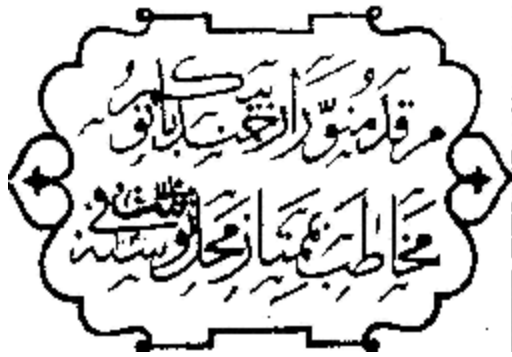 مرقد منور ارجمند بانو بیگم
مخاطب بممتاز محل توفیت فی سنه